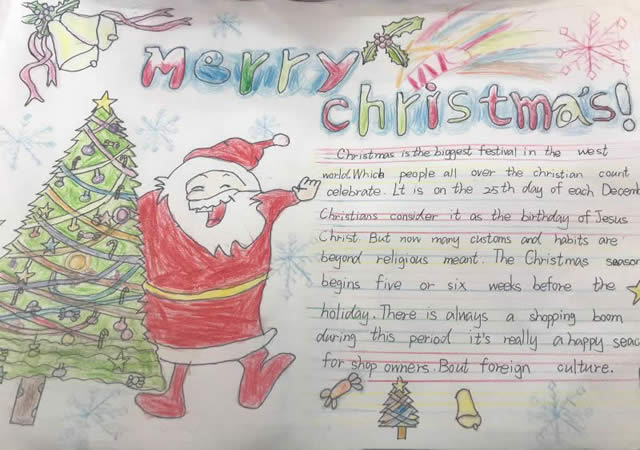 Merry
christmas!
Christmas is the biggest festival in the west
world. Which people all over the christian count
celebrate. Lt is on the 25th day of each Decem
Christians consider it as the birthday of Jesus
Christ. But now many customs and habits are
beyond religious meant. The Christmas season
begins five or six weeks before the
holiday. There is always a shopping boom
during this period it's really a happy seac
for shop owners. Bout foreign culture.